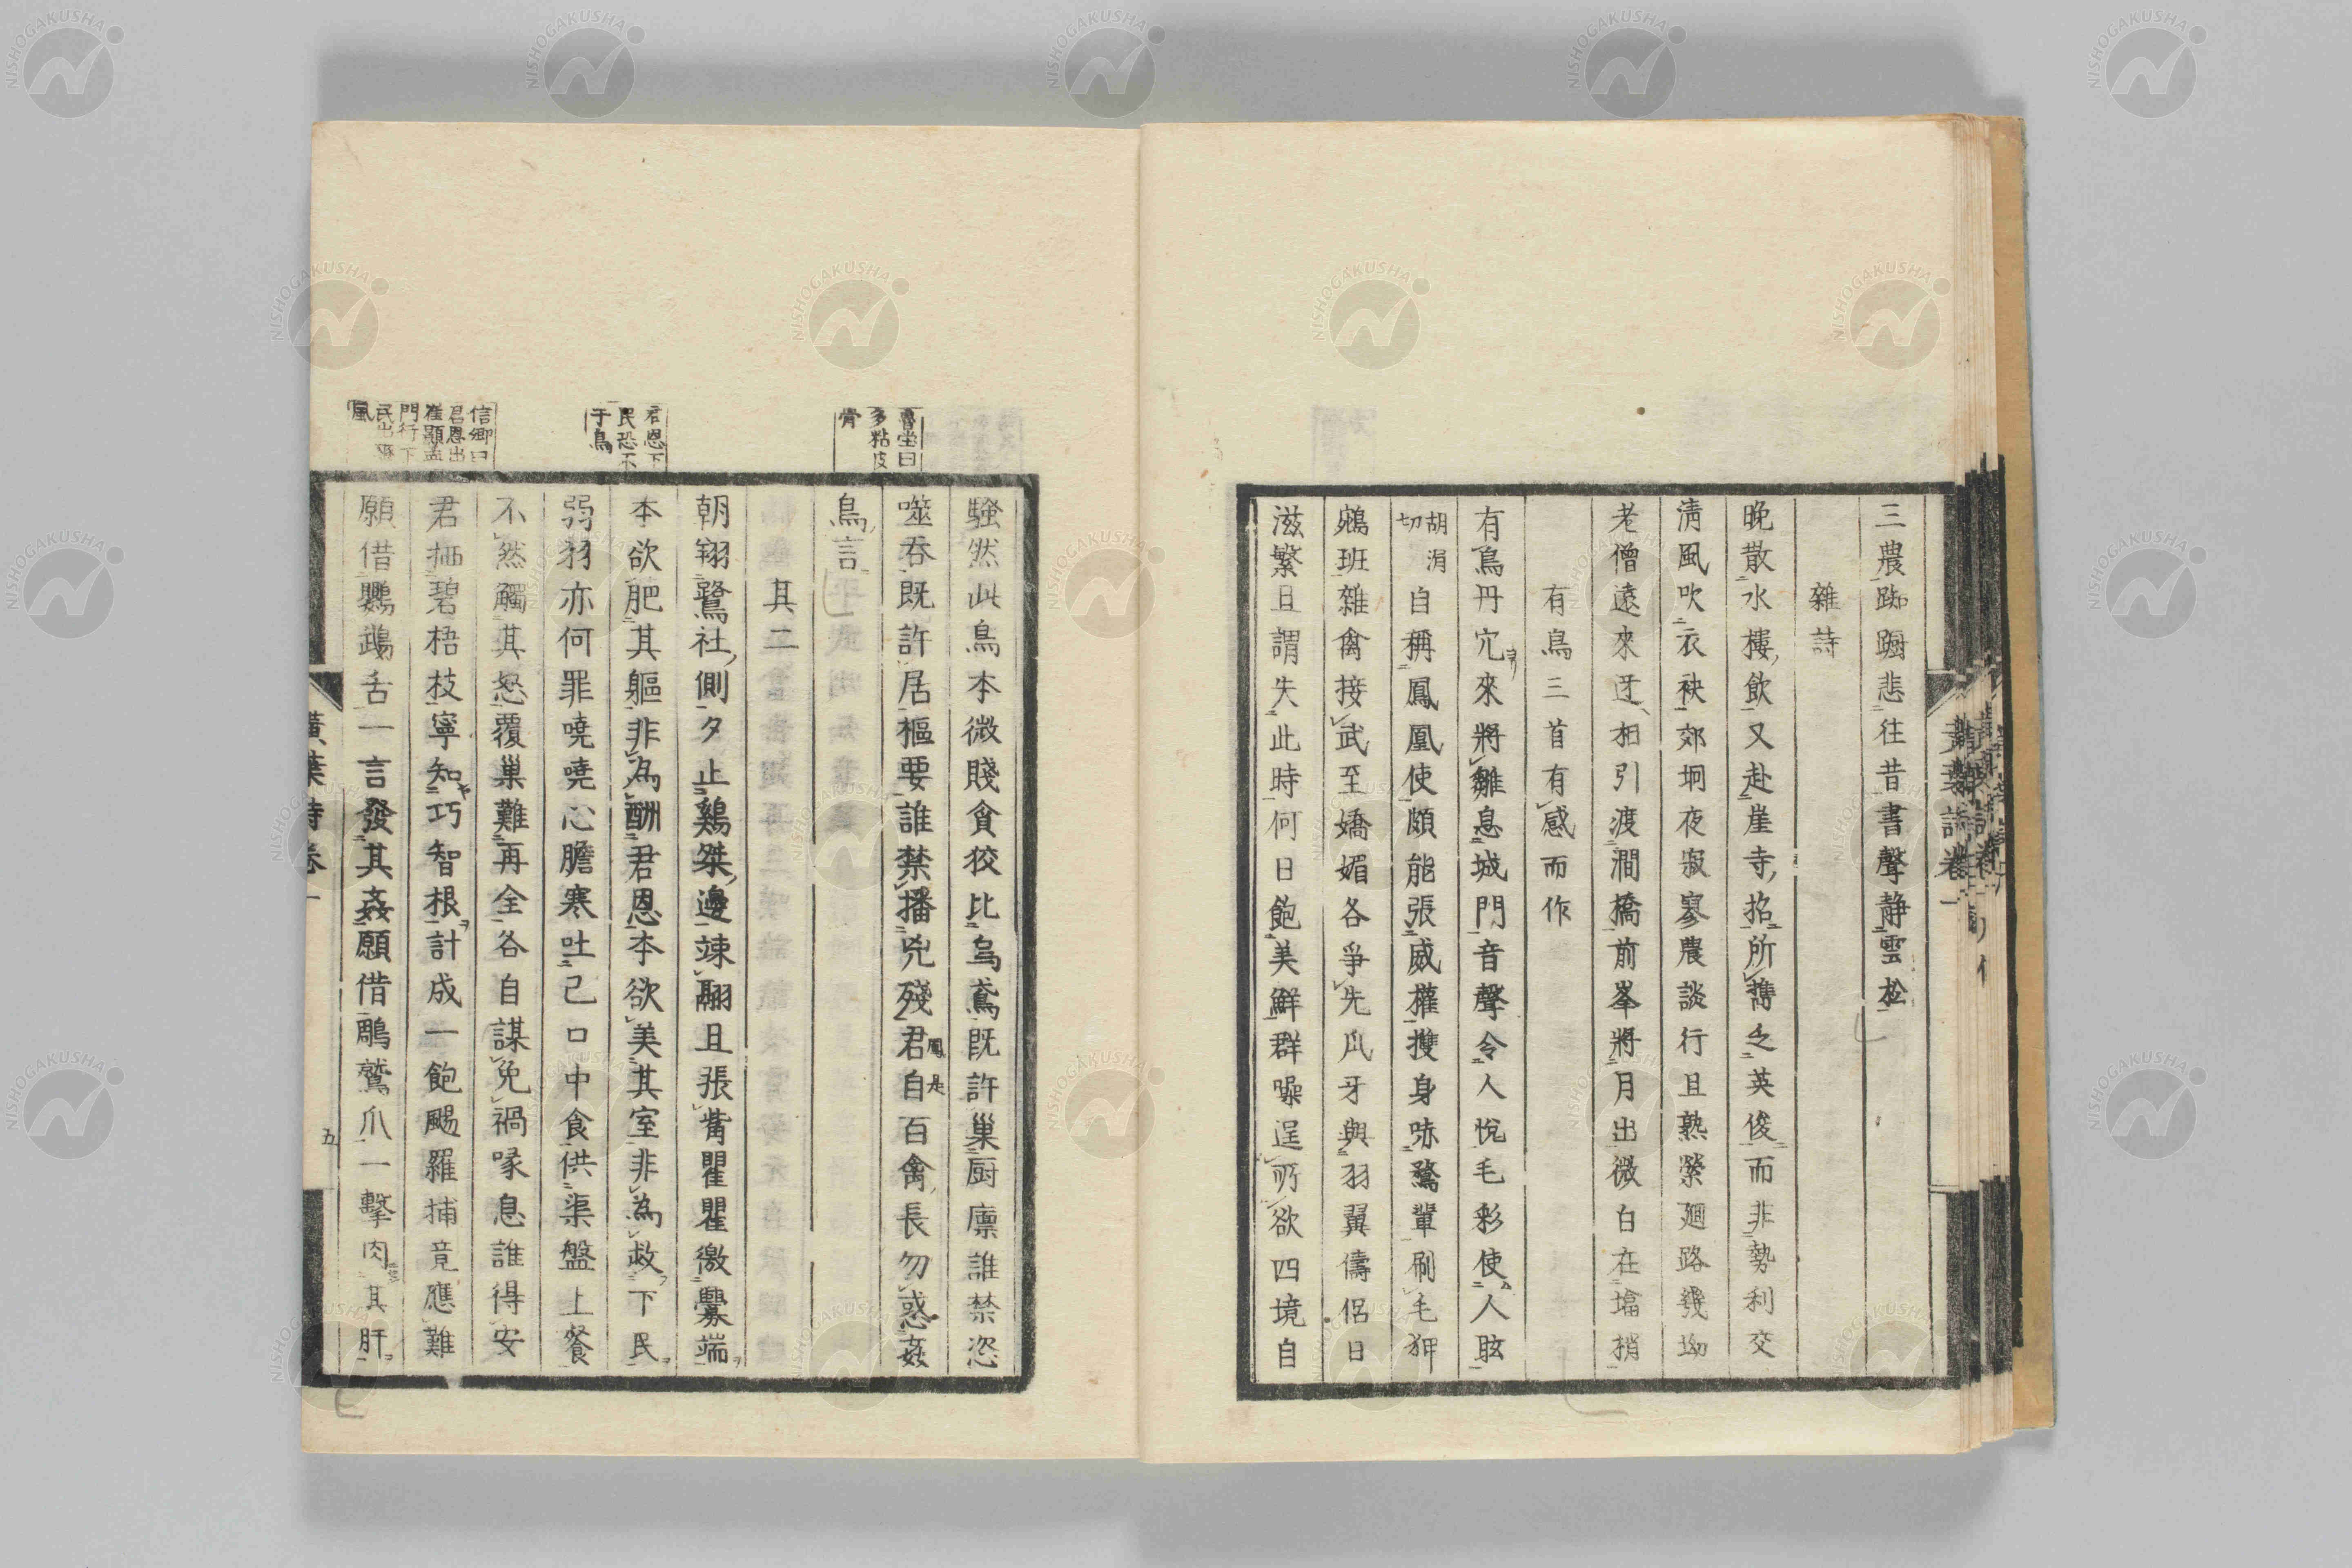 三農踟躕悲往昔書聲静雲松
雜詩
晚散水樓飲又赴崖寺招所攜乏英俊而非勢利交
淸風吹衣袂郊坰夜寂寥農談行且熟縈廻路幾坳
老僧遠來迓相引渡澗橋前峯將月出微白在墖梢
有鳥三首有感而作
有鳥丹穴來將雛息城門音聲令人悅毛彩使人眩
胡涓切
自稱鳳凰使頗能張威權攫身味鶩輩刷毛狎
鵷班雜禽接武至嬌媚各爭先爪牙與羽翼儔侶日
滋繁且謂失此時何日飽美鮮群噪逞所欲四境自
騷然此鳥本微賤貪狡比烏鳶旣許巢厨廪誰禁恣
噬吞既許居樞要誰禁播兇殘君自百禽長勿惑姦
鳥言
其二
朝翔鷺社側夕止鷄桀邊竦翮且張觜瞿瞿徼釁端
本欲肥其軀非為酬君恩本欲美其室非為救下民
弱羽亦何罪嘵嘵心膽寒吐己口中食供渠盤上餐
不然觸其怒覆巢難再全各自謀免禍喙息誰得安
君栖碧梧枝寧知巧智根計成一飽颺羅捕竟應難
願借鸚鵡舌一言發其姦願借鵰鷲爪一擊肉其肝
魯堂曰
多粘皮
骨
君恩下
民恐不
于鳥
信卿曰
君恩出
崔顥孟
門行下
民出
風
黃葉詩卷一
五
黃葉詩卷一
NISHOGAKUSHA